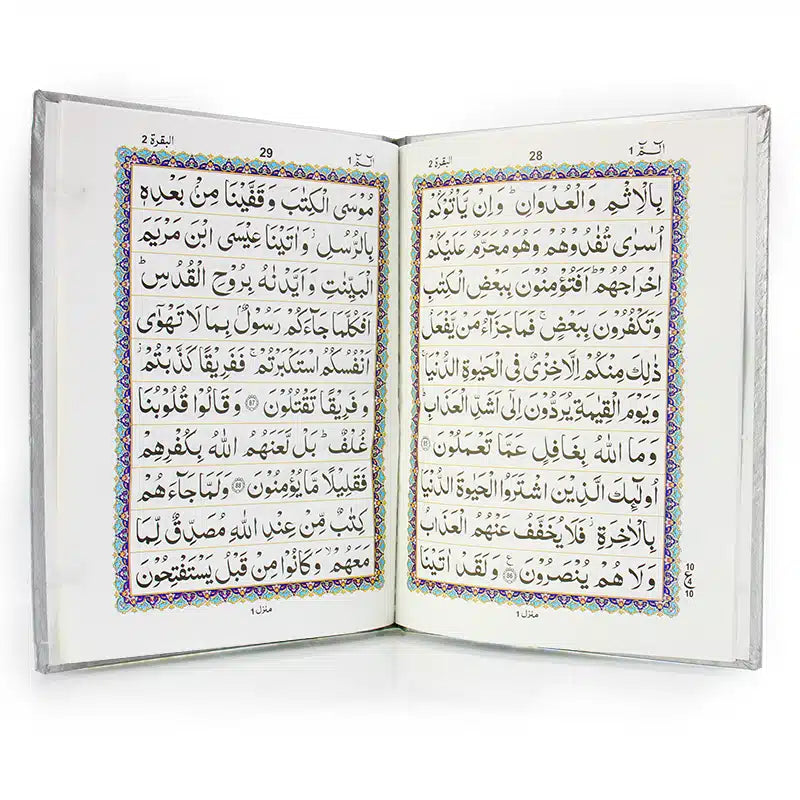 الٓمّٓ ١
28
البقرة 2
بِالْاِثْمِ وَالْعُدْوَانِ ؕ وَاِنْ يَّاْتُوْكُمْ
اُسٰرٰى تُفٰدُوْهُمْ وَهُوَ مُحَرَّمٌ عَلَيْكُمْ
اِخْرَاجُهُمْ ؕ اَفَتُؤْمِنُوْنَ بِبَعْضِ الْكِتٰبِ
وَتَكْفُرُوْنَ بِبَعْضٍ ۚ فَمَا جَزَآءُ مَنْ يَّفْعَلُ
ذٰلِكَ مِنْكُمْ اِلَّا خِزْىٌ فِى الْحَيٰوةِ الدُّنْيَا ۚ
وَيَوْمَ الْقِيٰمَةِ يُرَدُّوْنَ اِلٰٓى اَشَدِّ الْعَذَابِ ؕ
وَمَا اللّٰهُ بِغَافِلٍ عَمَّا تَعْمَلُوْنَ 85
اُولٰٓئِكَ الَّذِيْنَ اشْتَرَوُا الْحَيٰوةَ الدُّنْيَا
بِالْاٰخِرَةِ ؗ فَلَا يُخَفَّفُ عَنْهُمُ الْعَذَابُ
وَلَا هُمْ يُنْصَرُوْنَ 86 وَلَقَدْ اٰتَيْنَا
10
ع
10
منزل ١
البقرة 2
29
الٓمّٓ ١
مُوْسَى الْكِتٰبَ وَقَفَّيْنَا مِنْۢ بَعْدِهٖ
بِالرُّسُلِ ؗ وَاٰتَيْنَا عِيْسَى ابْنَ مَرْيَمَ
الْبَيِّنٰتِ وَاَيَّدْنٰهُ بِرُوْحِ الْقُدُسِ ؕ
اَفَكُلَّمَا جَآءَكُمْ رَسُوْلٌۢ بِمَا لَا تَهْوٰٓى
اَنْفُسُكُمُ اسْتَكْبَرْتُمْ ۚ فَفَرِيْقًا كَذَّبْتُمْ ؗ
وَفَرِيْقًا تَقْتُلُوْنَ 87 وَقَالُوْا قُلُوْبُنَا
غُلْفٌ ؕ بَلْ لَّعَنَهُمُ اللّٰهُ بِكُفْرِهِمْ
فَقَلِيْلًا مَّا يُؤْمِنُوْنَ 88 وَلَمَّا جَآءَهُمْ
كِتٰبٌ مِّنْ عِنْدِ اللّٰهِ مُصَدِّقٌ لِّمَا
مَعَهُمْ ۙ وَكَانُوْا مِنْ قَبْلُ يَسْتَفْتِحُوْنَ
منزل ١